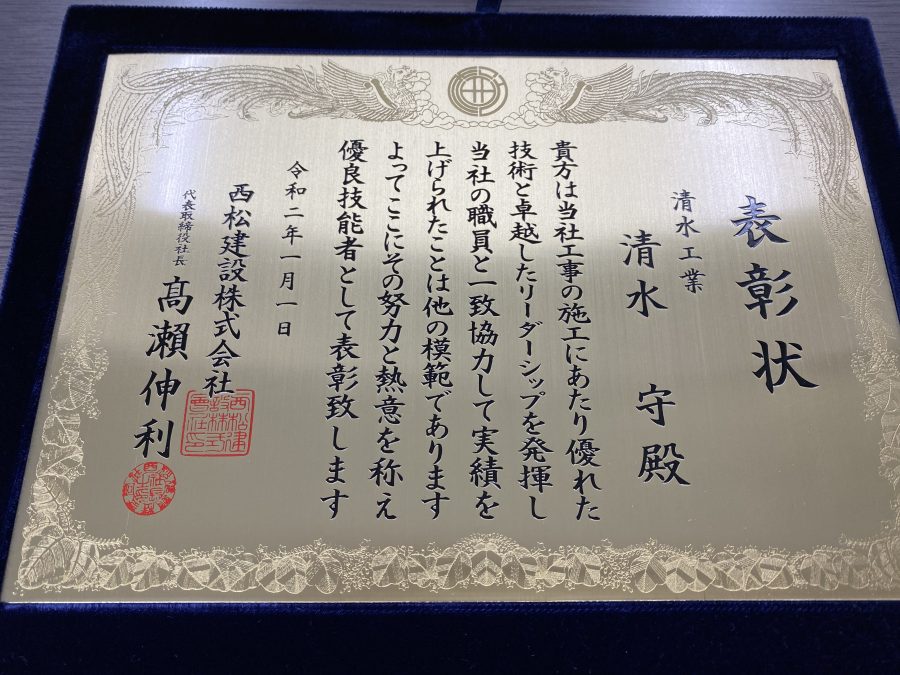 表彰状
清水工業
清水 守殿
貴方は当社工事の施工にあたり優れた
技術と卓越したリーダーシップを発揮し
当社の職員と一致協力して実績を
上げられたことは他の模範であります
よってここにその努力と熱意を称え
優良技能者として表彰致します
令和二年一月一日
西松建設株式会社
代表取締役社長
髙瀨伸利